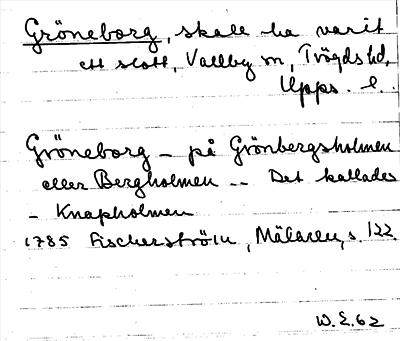 Gröneborg, skall ha varit
ett slott, Vallby sn, Trögds hd,
Upps. l.
Gröneborg – på Grönbergsholmen
eller Bergholmen -- Det kallades
– Knapholmen
1785 Fischerström, Mälaren, s. 122.
W.E.62